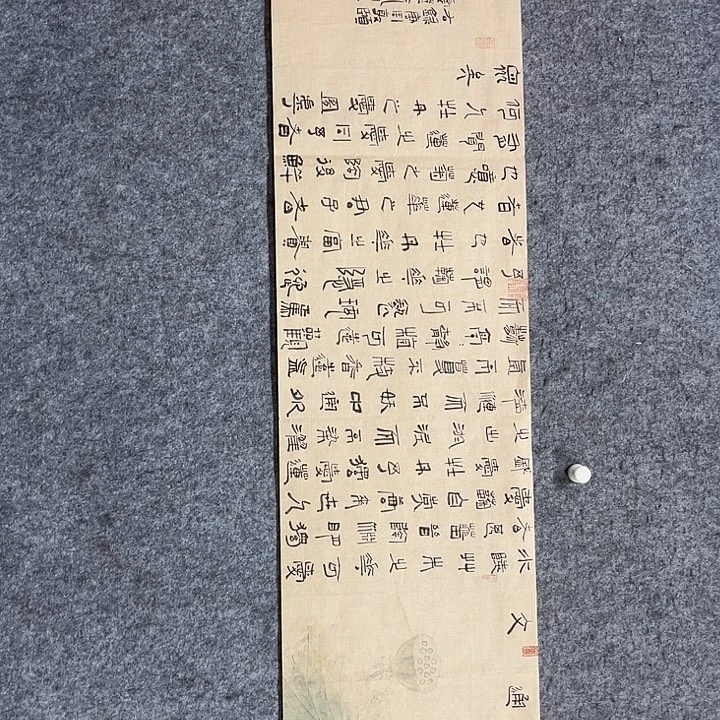 通
文
水陸草木之花可愛
者甚蕃晉陶淵明獨
愛菊自李唐來世人
盛愛牡丹予獨愛蓮
之出淤泥而不染濯
清漣而不妖中通外
直不蔓不枝香遠益
清亭亭淨植可遠觀
而不可褻玩焉
予謂菊花之隱逸
者也牡丹花之富貴
者也蓮花之君子者
也噫菊之愛陶後鮮
有聞蓮之愛同予者
何人牡丹之愛宜乎
眾矣